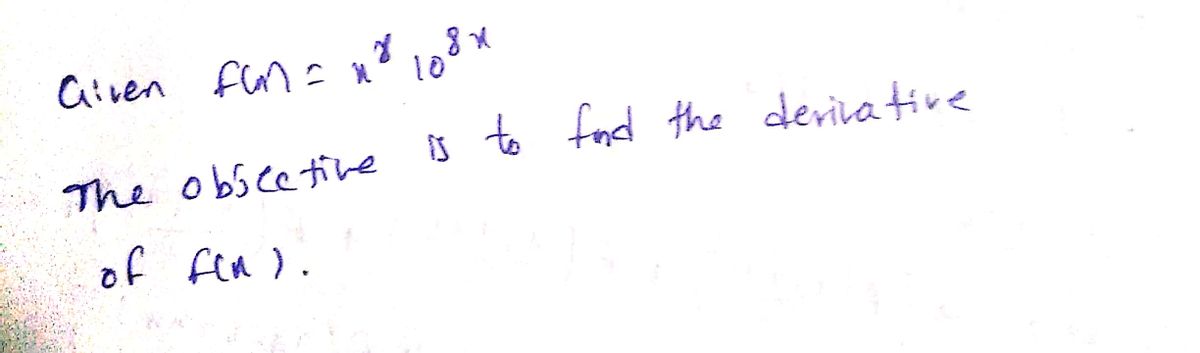 Given f(x) = x⁸ 10⁸ˣ
The objective is to find the derivative
of f(x).